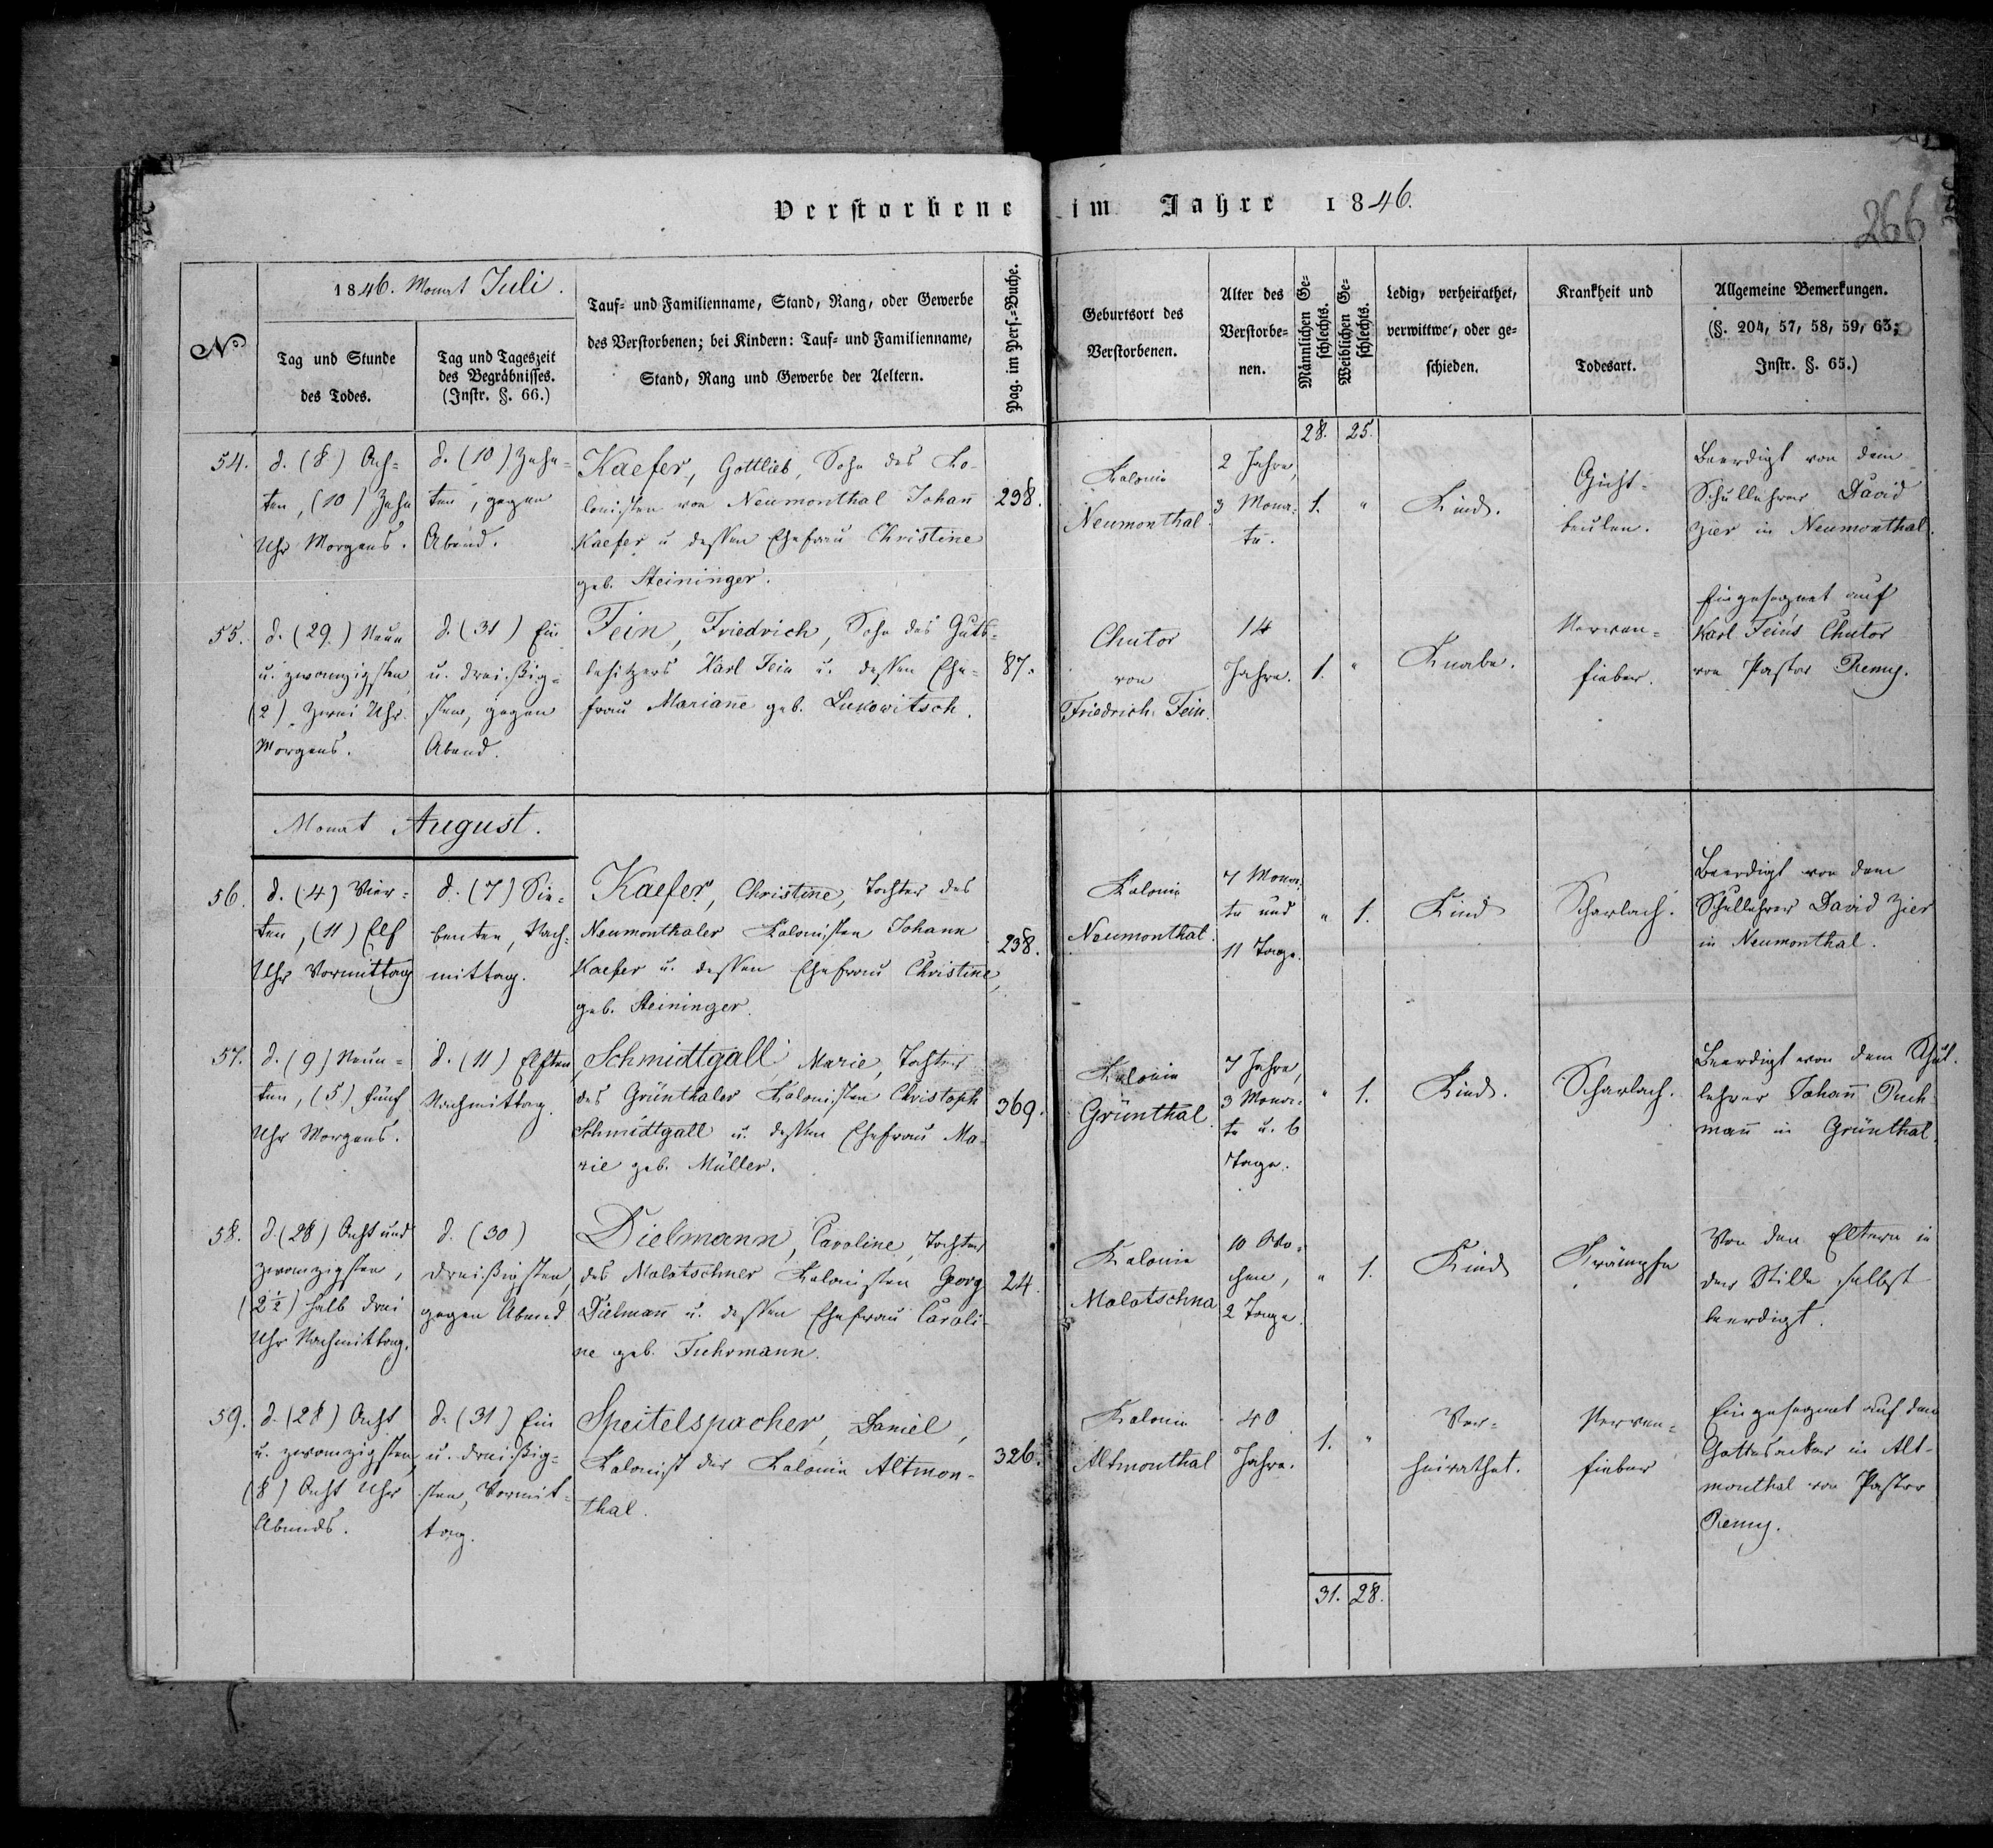 Verstorbene im Jahre 1846.
266
N°
1846. Monat Juli.
Tag und Stunde
des Todes.
Tag und Tageszeit
des Begräbnisses.
(Instr. §. 66.)
Tauf- und Familienname, Stand, Rang, oder Gewerbe
des Verstorbenen; bei Kindern: Tauf- und Familienname,
Stand, Rang und Gewerbe der Aeltern.
Pag. im Pers.-Buche.
Geburtsort des
Verstorbenen.
Alter des
Verstorbe-
nen.
Männlichen Ge-
schlechts.
Weiblichen Ge-
schlechts.
Ledig, verheirathet,
verwittwet, oder ge-
schieden.
Krankheit und
Todesart.
Allgemeine Bemerkungen.
(§. 204, 57, 58, 59, 63;
Instr. §. 65.)
28. 25.
54.
d. (8) Ach-
ten, (10) Zehn
Uhr Morgens.
d. (10) Zehn-
ten, gegen
Abend.
Kaefer, Gottlieb, Sohn des Ko-
lonisten von Neumonthal Johañ
Kaefer u dessen Ehefrau Christine
geb. Steininger.
238.
Kolonie
Neumonthal.
2 Jahre,
3 Mona-
te.
1. "
Kind.
Gicht-
beulen.
Beerdigt von dem
Schullehrer David
Zier in Neumonthal.
55.
d. (29.) Neun
u. zwanzigsten,
(2) Zwei Uhr
Morgens.
d. (31) Ein
u. dreißig-
sten, gegen
Abend.
Fein, Friedrich, Sohn des Guts-
besitzers Karl Fein u. dessen Ehe-
frau Mariañe geb. Lukowitsch.
87.
Chutor
von
Friedrich Fein.
14
Jahre.
1. "
Knabe.
Nerven-
fieber.
Eingesegnet auf
Karl Fein's Chutor
von Pastor Remy.
Monat August.
56.
d. (4) Vier-
ten, (11) Elf
Uhr Vormittag
d. (7) Sie-
benten, Nach-
mittag.
Kaefer, Christine, Tochter des
Neumonthaler Kolonisten Johann
Kaefer u. dessen Ehefrau Christine,
geb. Steininger.
238.
Kolonie
Neumonthal.
7 Mona-
te und
11 Tage.
" 1.
Kind
Scharlach.
Beerdigt von dem
Schullehrer David Zier
in Neumonthal.
57.
d. (9) Neun-
ten, (5) fünf
Uhr Morgens.
d. (11) Elften,
Nachmittag.
Schmidtgall, Marie, Tochter
des Grünthaler Kolonisten Christoph
Schmidtgall u. dessen Ehefrau Ma-
rie geb. Müller.
369.
Kolonie
Grünthal.
7 Jahre,
3 Mona-
te u. 6
Tage.
" 1.
Kind.
Scharlach.
Beerdigt von dem Schul-
lehrer Johañ Ruch-
mañ in Grünthal.
58.
d. (28) Acht und
zwanzigsten,
(2½) halb drei
Uhr Nachmittag.
d. (30)
dreißigsten,
gegen Abend
Dielmann, Caroline, Tochter
des Molotschner Kolonisten Georg
Dielmañ u. dessen Ehefrau Caroli-
ne geb. Fuhrmann.
24.
Kolonie
Molotschna
10 Wo-
chen,
2 Tage.
" 1.
Kind
Krämpfe
Von den Eltern in
der Stille selbst
beerdigt.
59.
d. (28) Acht
u. zwanzigsten,
(8) Acht Uhr
Abends.
d. (31) Ein
u. dreißig-
sten, Vormit-
tag.
Speitelspacher, Daniel,
Kolonist der Kolonie Altmon-
thal.
326.
Kolonie
Altmonthal
40
Jahre.
1. "
Ver-
heirathet.
Nerven-
fieber
Eingesegnet auf dem
Gottesacker in Alt-
monthal von Pastor
Remy.
31. 28.